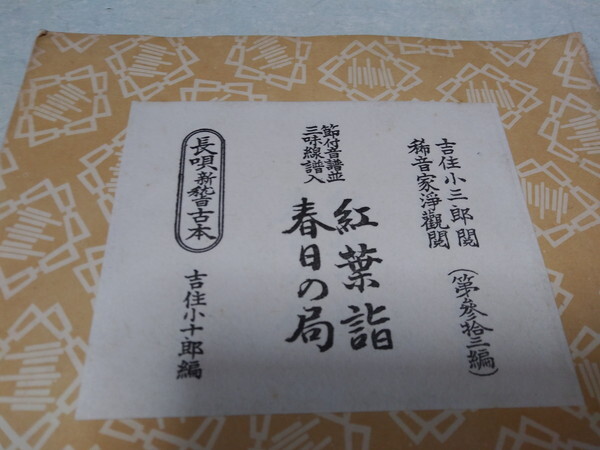 吉住小三郎閲
稀音家淨觀閲
(第參拾三編)
節付音譜並
三味線譜入
紅葉詣
春日の局
長唄新稽古本
吉住小十郎編